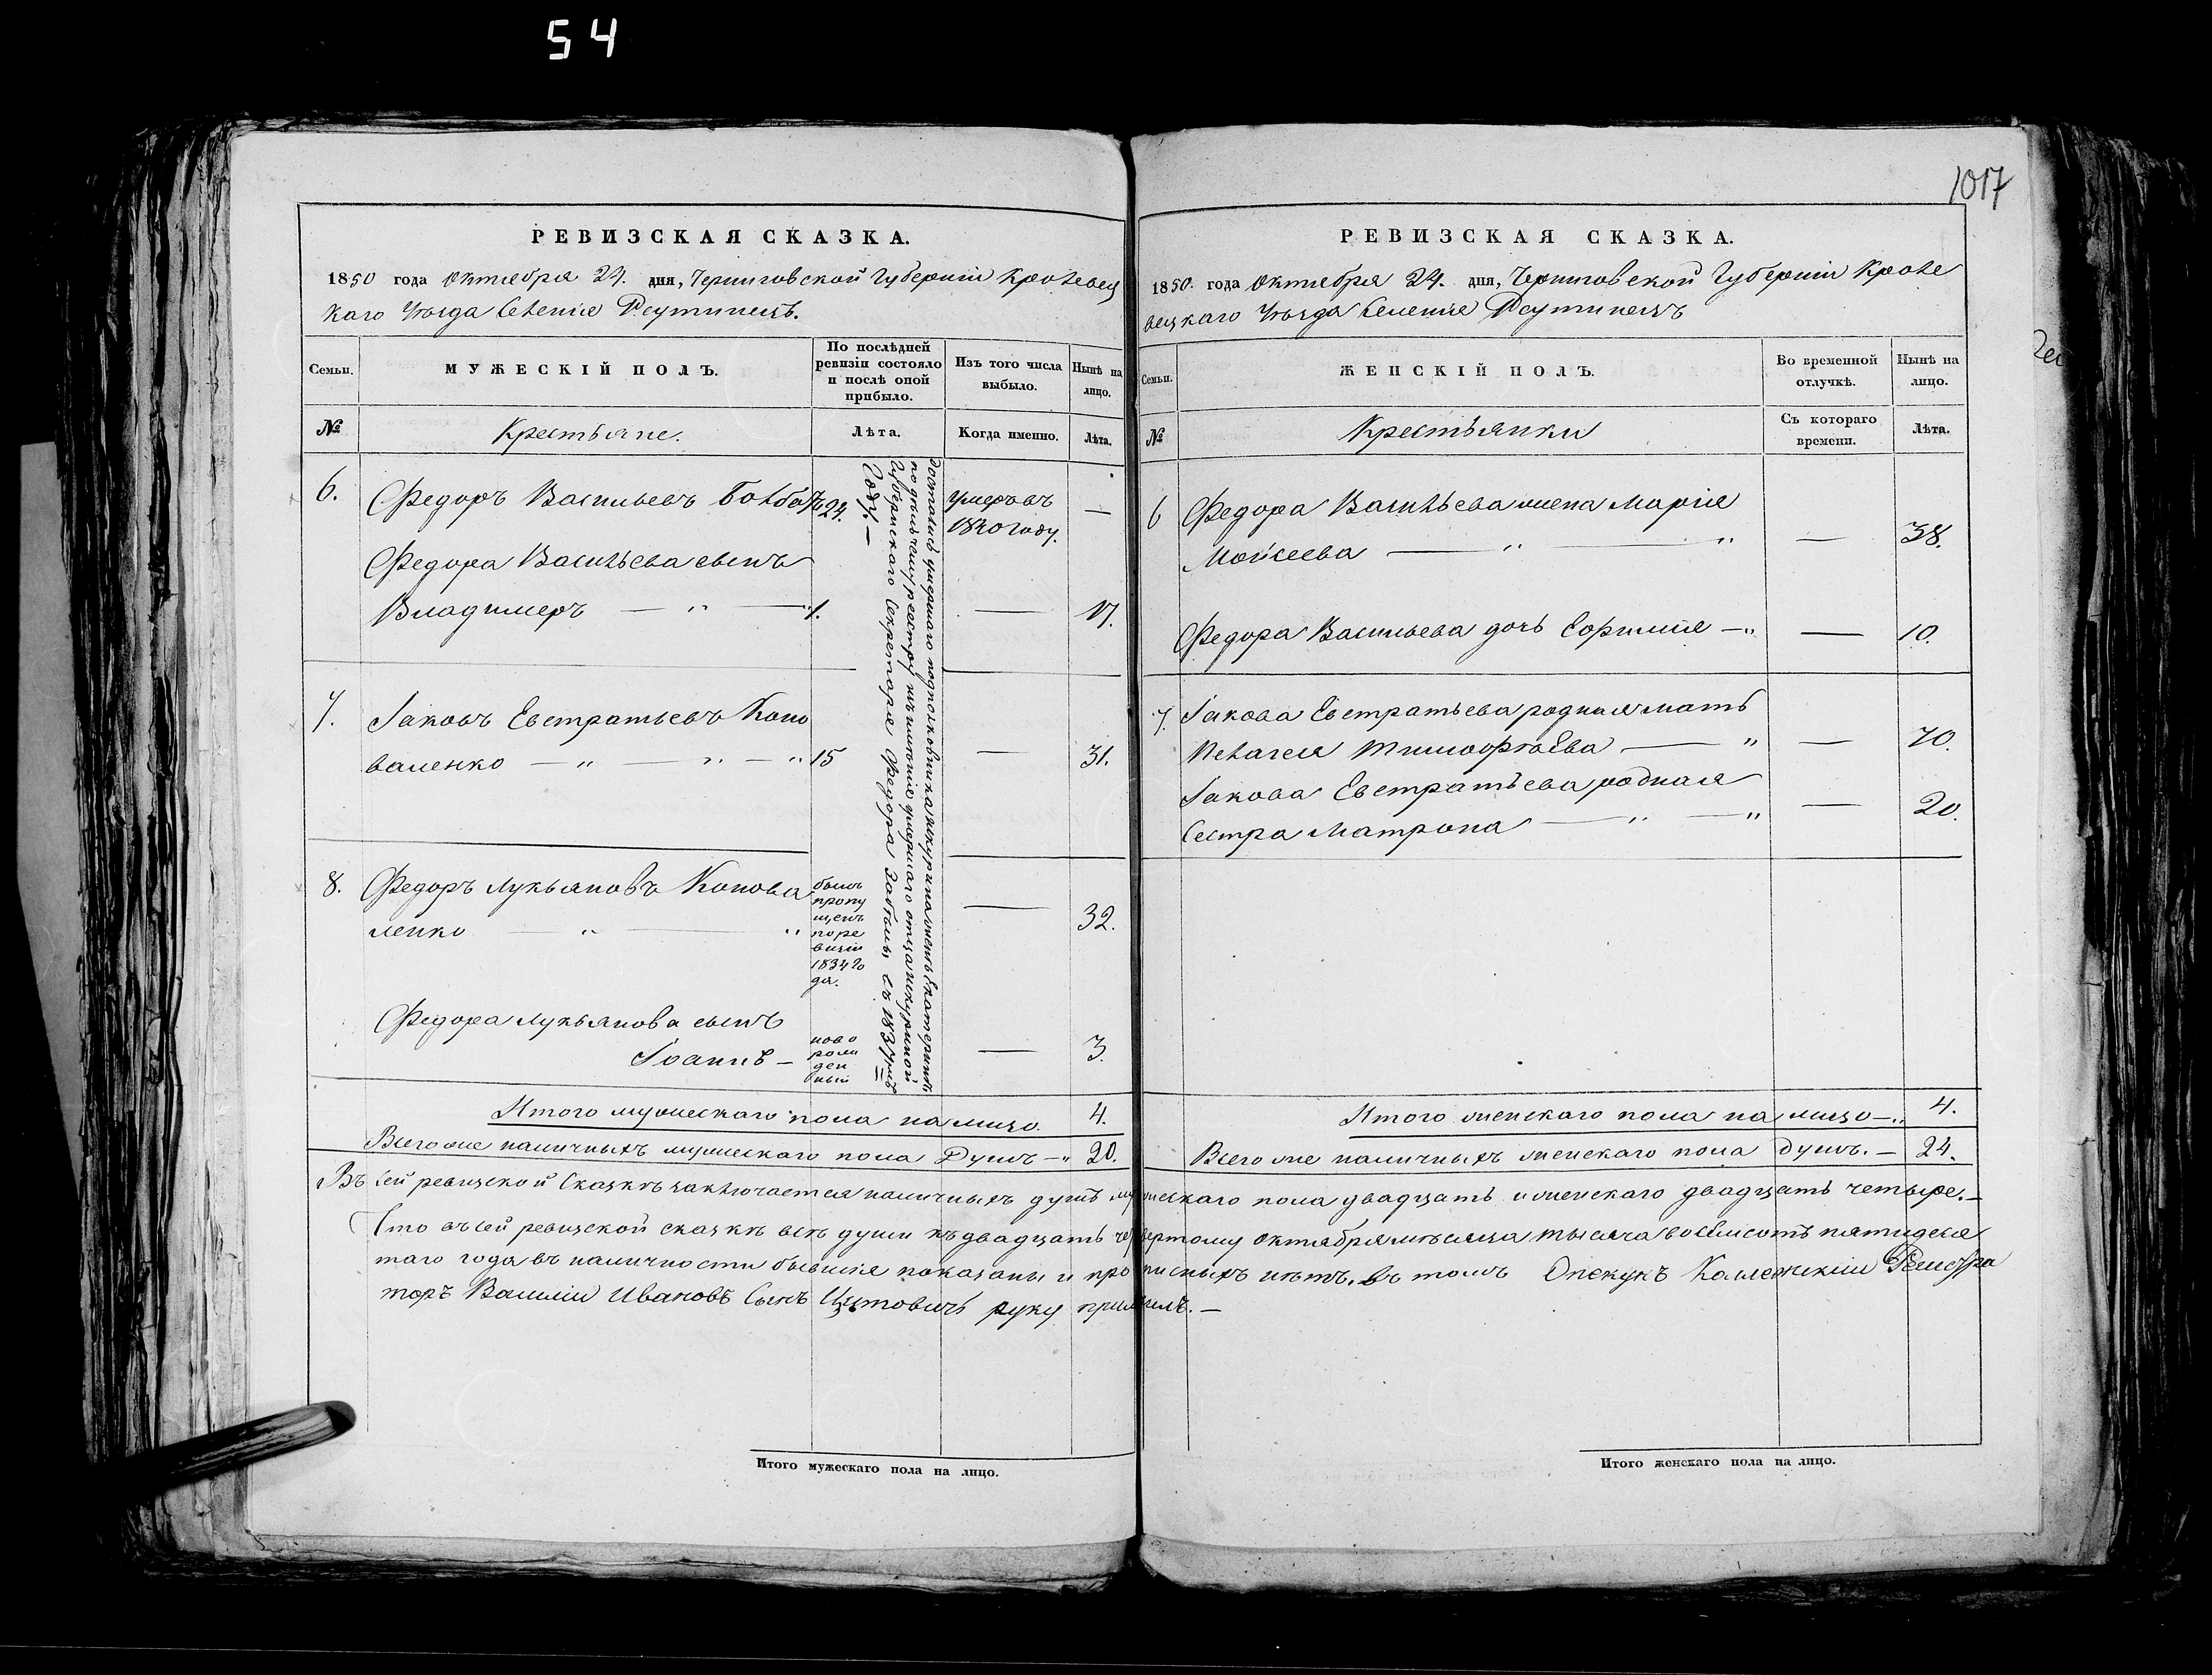 54
1017
РЕВИЗСКАЯ СКАЗКА.
1850 года Октября 24. дня, Черниговской Губерніи Кролевец
каго Уѣзда Селеніе Реутинецъ.
Семьи.
МУЖЕСКІЙ ПОЛЪ.
По послѣдней
ревизіи состояло
и послѣ оной
прибыло.
Изъ того числа
выбыло.
Нынѣ на
лицо.
№
Крестьяне.
Лѣта.
Когда именно.
Лѣта.
6.
Федоръ Васильевъ
24.
умеръ въ
1840 году.
—
Федора Васильева сынъ
Владимеръ — „ — „
1.
—
17.
7.
Іаковъ Евстратьевъ Коно
валенко — „ — „ — „
15
—
31.
8.
Федоръ Лукьяновъ Конова
ленко — „ — „
былъ
пропу
щенъ
по ре
визіи
1834 го
да.
—
32.
Федора Лукьянова сынъ
Іоаннъ —
ново
рожд
ден
ный
—
3.
Достались умершаго подполковника женѣ Екатеринѣ
по раздѣльному реестру имѣнія умершаго отца
Губернскаго Секретаря Федора Забѣлы съ 1837мъ
Году. —
Итого мужескаго пола на лицо. 4.
Всего же наличныхъ мужескаго пола Душъ — „ 20.
РЕВИЗСКАЯ СКАЗКА.
1850. года Октября 24. дня, Черниговской Губерніи Кроле
вецкаго Уѣзда Селеніе Реутинецъ
Семьи.
ЖЕНСКІЙ ПОЛЪ.
Во временной
отлучкѣ.
Нынѣ на
лицо.
№
Крестьянки
Съ котораго
времени.
Лѣта.
6
Федора Васильева жена Марія
Моисеева — „ — „
—
38.
Федора Васильева дочь — „
—
10.
7.
Іакова Евстратьева родная мать
Пелагея Тимофѣева — „
—
70.
Іакова Евстратьева родная
Сестра Матрона — „ — „
—
20.
Итого женскаго пола на лицо — „ 4.
Всего же наличныхъ женскаго пола душъ. — 24.
Въ сей ревизской Сказкѣ заключается наличныхъ душъ мужескаго пола двадцать и женскаго двадцать четыре. —
Что въ сей ревизской сказкѣ всѣ души къ двадцать четвертому октября мѣсяца тысяча восемсотъ пятидеся
таго года въ наличности бывшіе показаны и прописныхъ нѣтъ. въ томъ Опекунъ Колежскій Регистра
торъ Василій Ивановъ Сынъ Цитовичъ руку приложилъ. —
Итого мужескаго пола на лицо.
Итого женскаго пола на лицо.